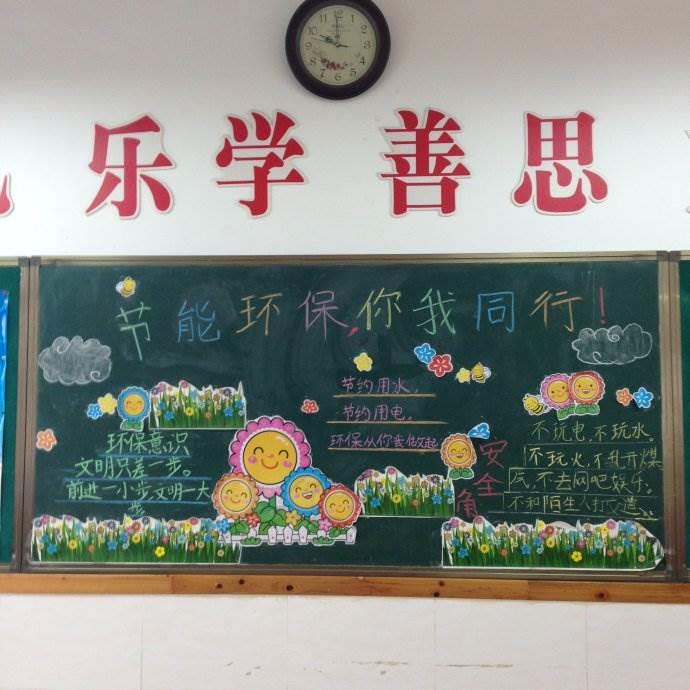 乐学善思
节能环保,你我同行!
环保意识
文明只差一步。
前进一小步文明一大
步
节约用水,
节约用电。
环保从你我做起
安全角
不玩电,不玩水。
不玩火,不乱开煤
气,不去网吧娱乐。
不和陌生人打交道。